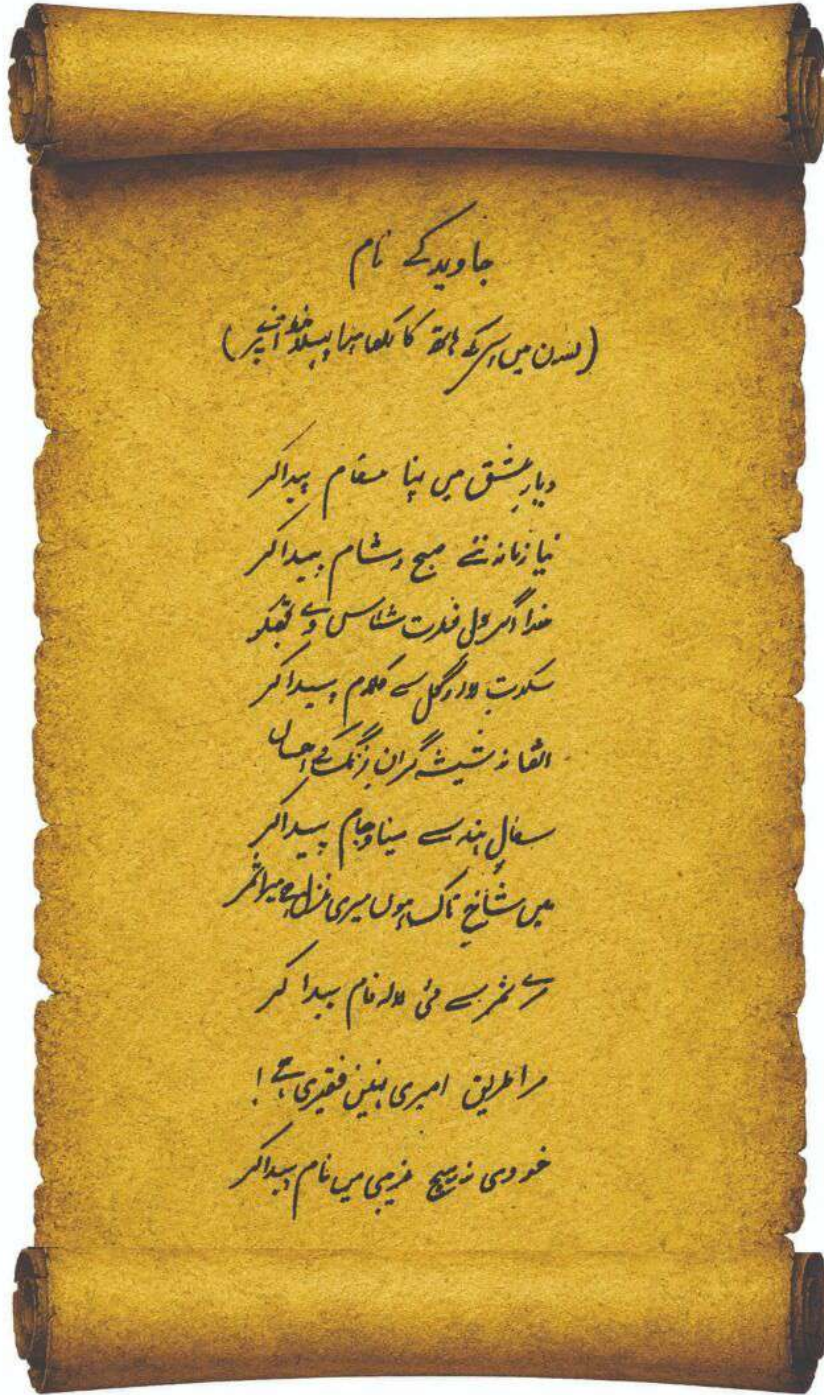 جاوید کے نام
(لندن میں اس کے ہاتھ کا لکھا ہوا پہلا خط آنے پر)
دیارِ عشق میں اپنا مقام پیدا کر
نیا زمانہ نئے صبح و شام پیدا کر
خدا اگر دلِ فطرت شناس دے تجھکو
سکوتِ لالہ و گل سے کلام پیدا کر
اٹھا نہ شیشہ گرانِ فرنگ کے احساں
سفالِ ہند سے مینا و جام پیدا کر
میں شاخِ تاک ہوں میری غزل ہے میرا ثمر
مرے ثمر سے مئی لالہ فام پیدا کر
مرا طریق امیری نہیں فقیری ہے!
خودی نہ بیچ غریبی میں نام پیدا کر